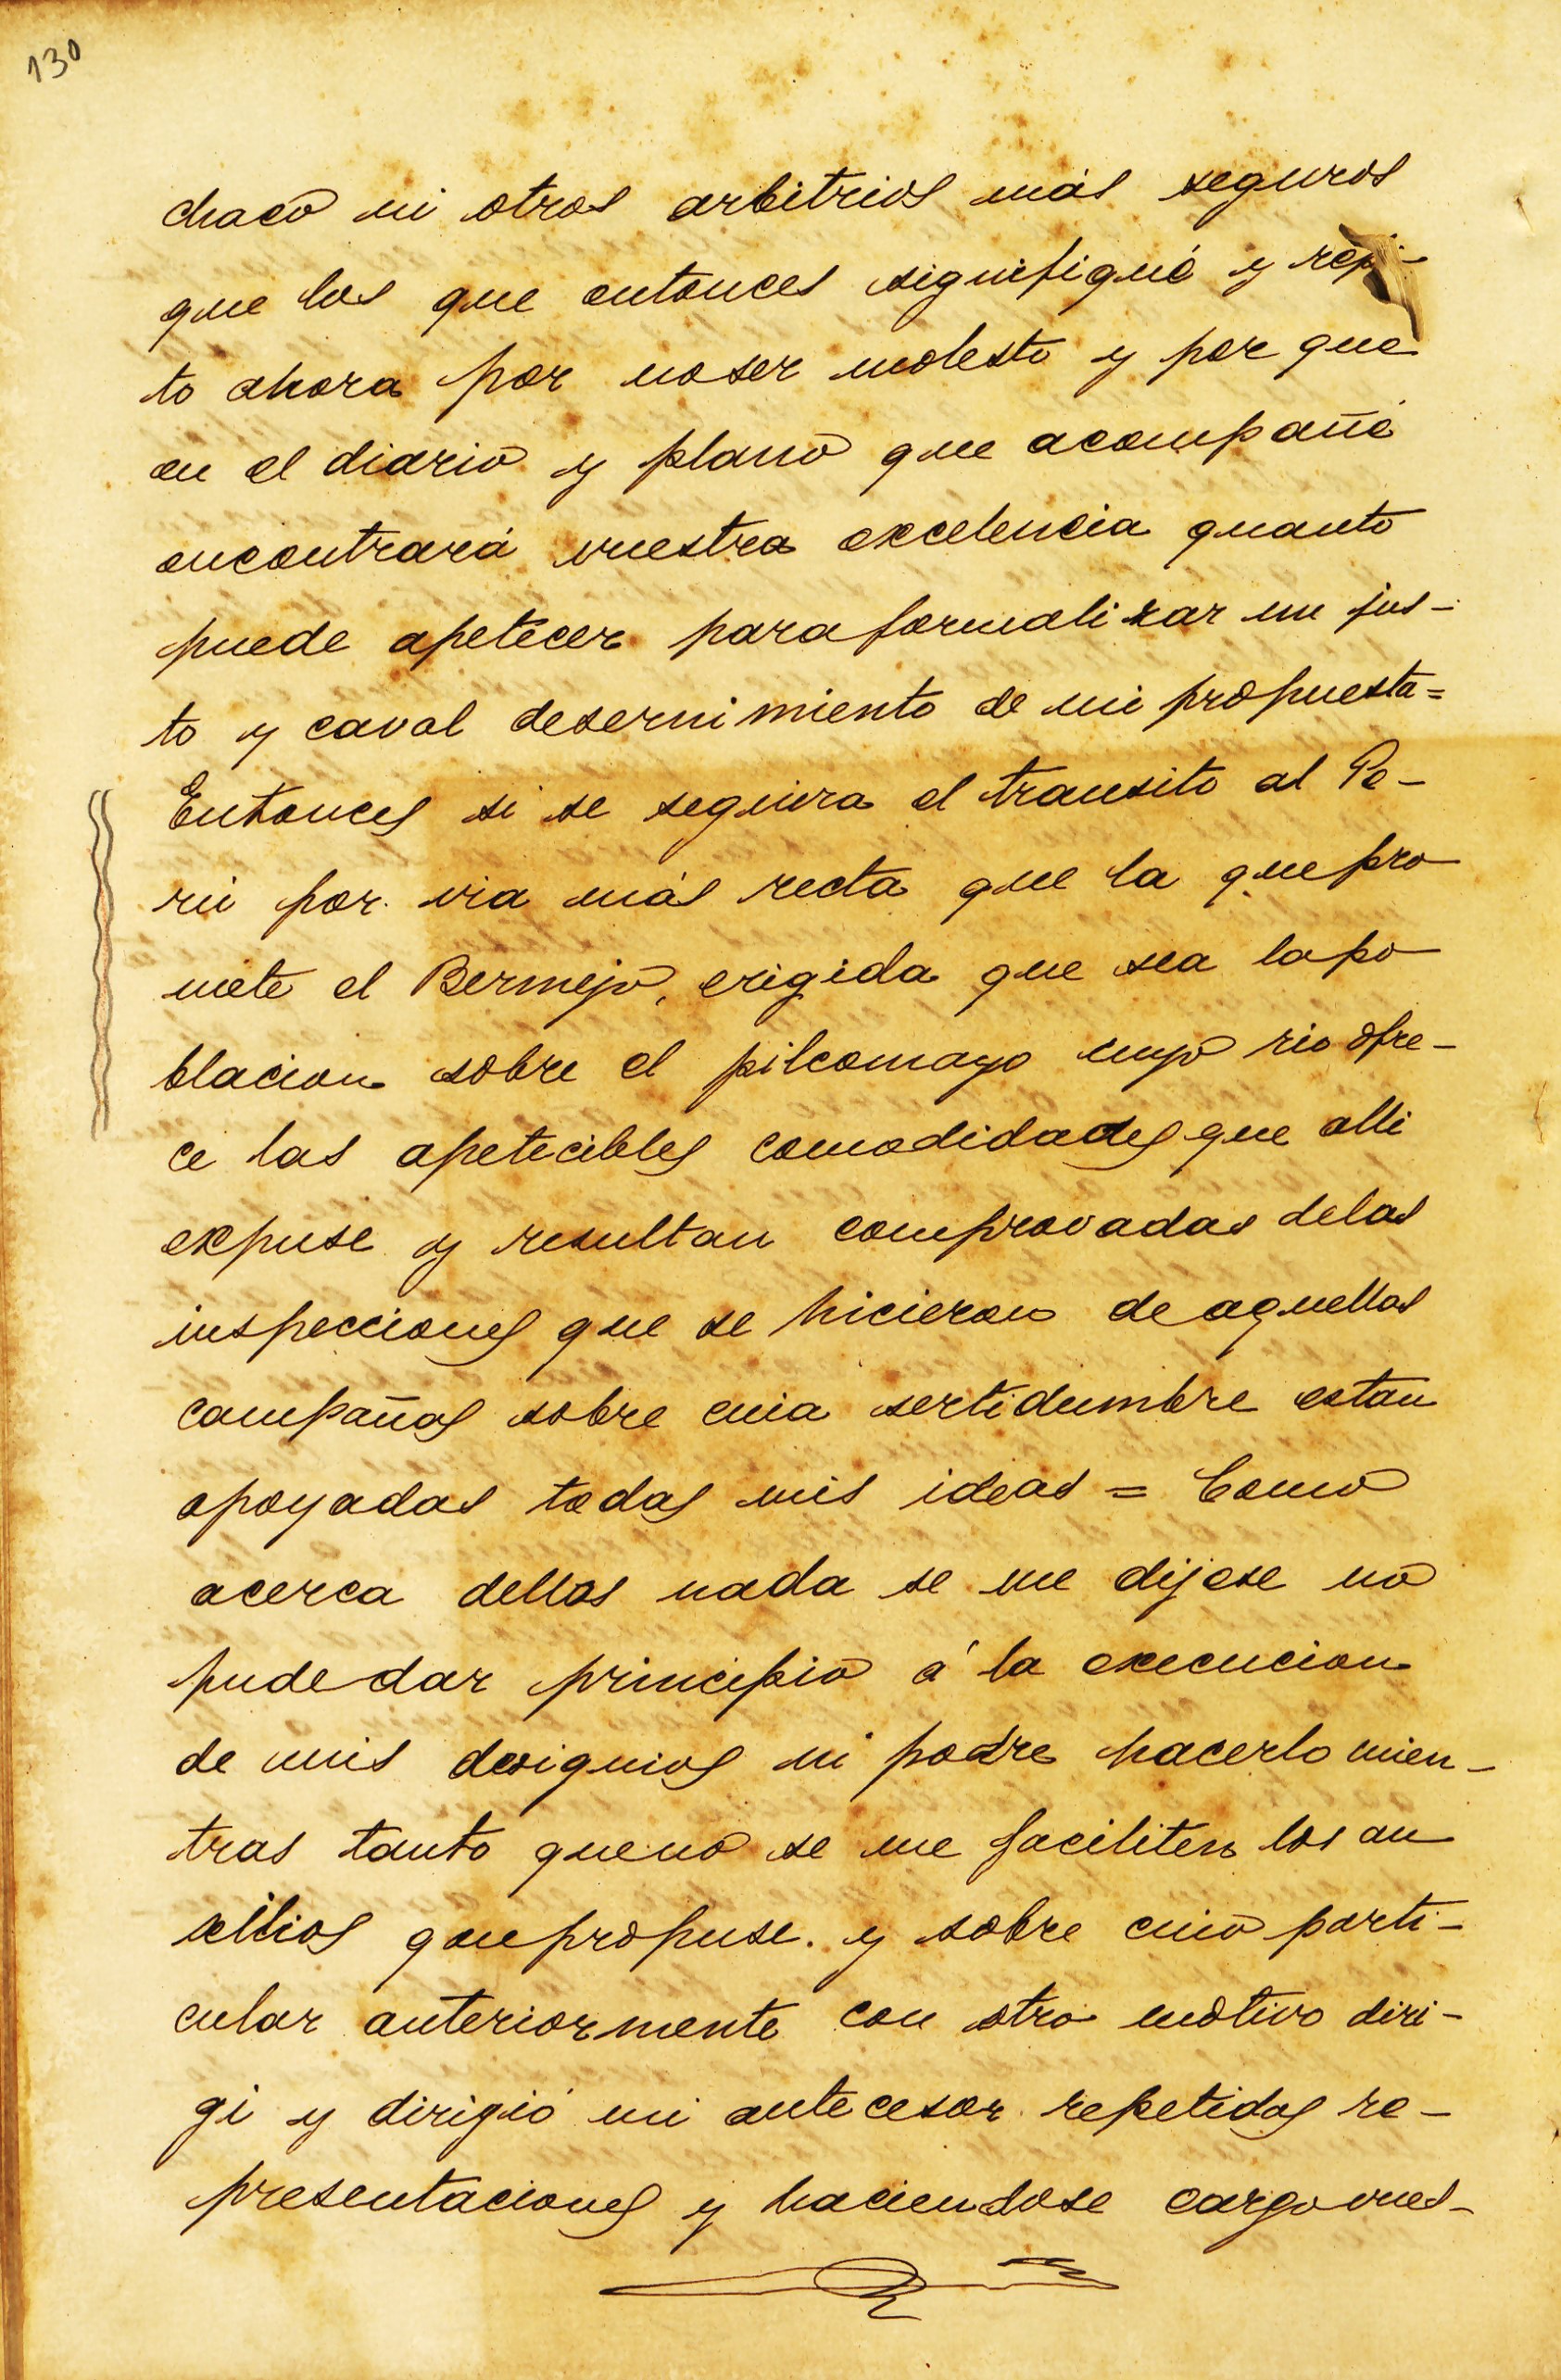 130
chaco ni otros arbitrios más seguros
que los que entonces signifiqué y repi-
to ahora por noser molesto y por que
en el diario y plano que acompañé
encontrará vuestra excelencia quanto
puede apetecer para formalizar un jus-
to y caval desernimiento de mi propuesta=
Entonces si se seguira el transito al Pe-
rú por via más recta que la que pro
mete el Bermejo, erigida que sea lapo
blacion sobre el pilcomayo cuyo rio ofre-
ce las apetecibles comodidades que alli
expuse y resultan comprovadas delas
inspecciones que se hicieron de aquellas
campañas sobre cuia sertidumbre estan
apoyadas todas mis ideas = Como
acerca dellas nada se me dijese no
pude dar principio á la execucion
de mis designios ni podre hacerlo mien-
tras tanto queno se me faciliten los au
xilios que propuse. y sobre cuio parti-
cular anteriormente con otro motivo diri-
gi y dirigió mi antecesor repetidas re-
presentaciones y haciendose cargo vues-